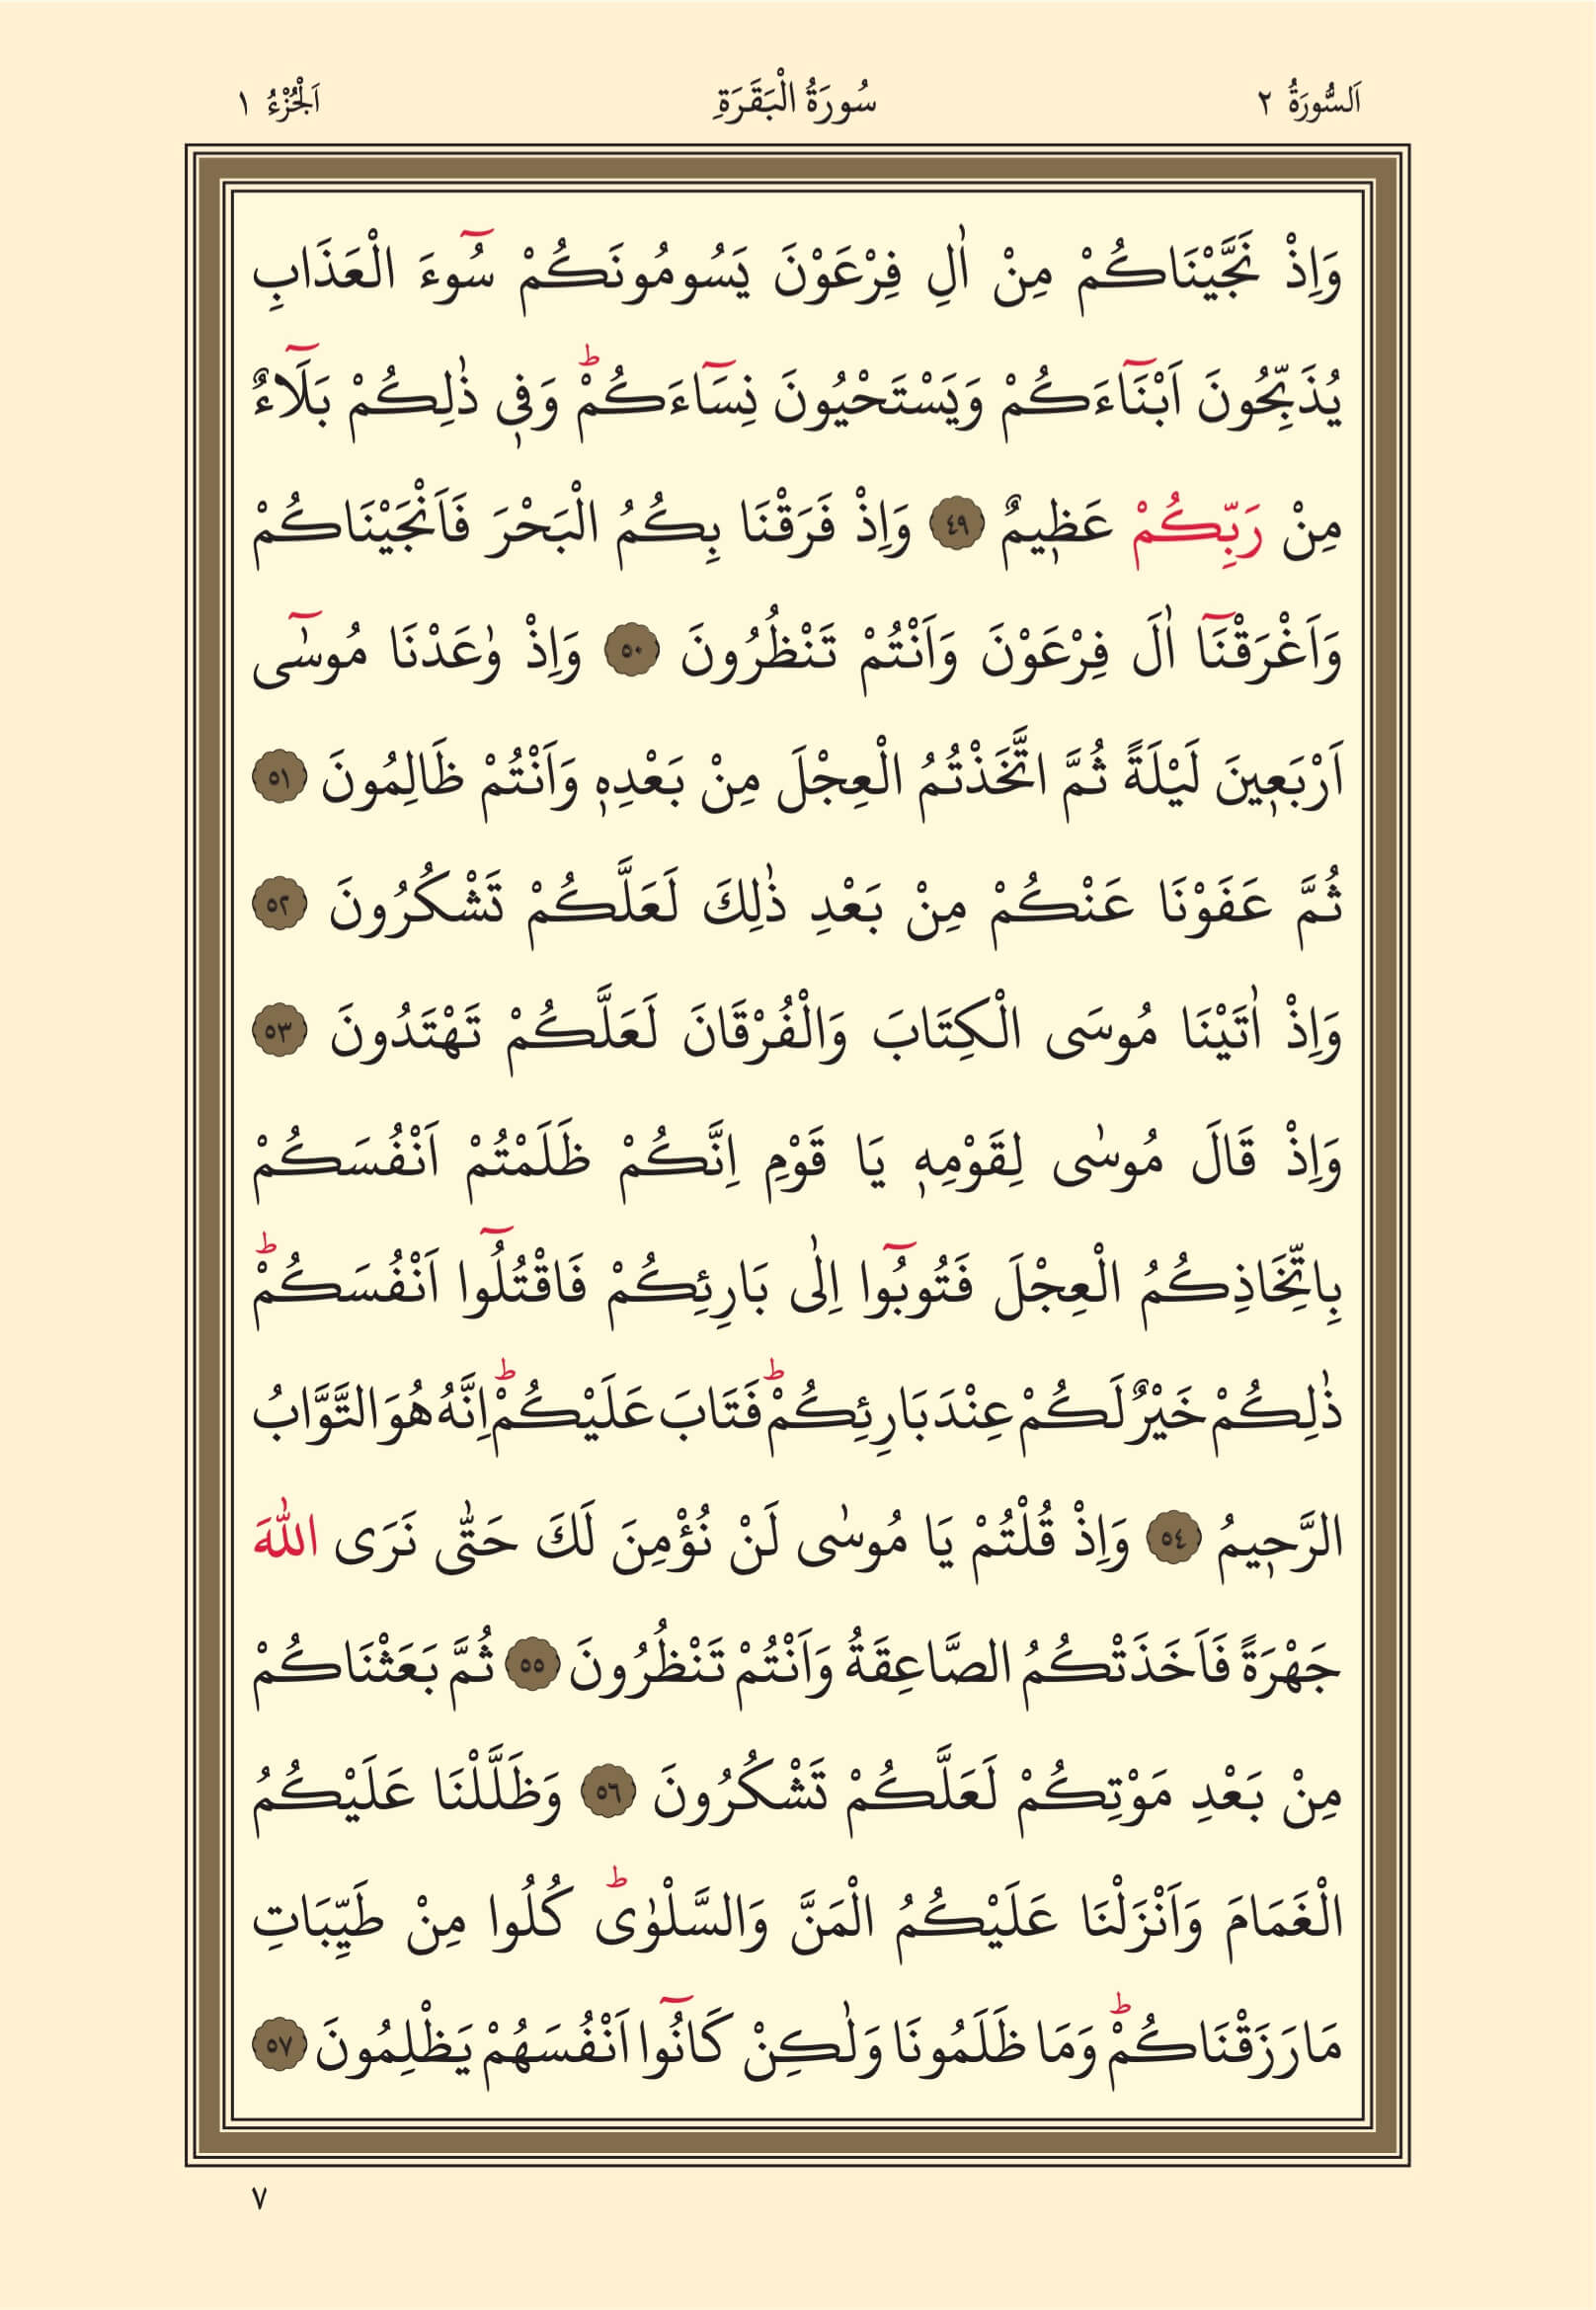 اَلسُّورَةُ ٢ سُورَةُ الْبَقَرَةِ اَلْجُزْءُ ١
وَاِذْ نَجَّيْنَاكُمْ مِنْ اٰلِ فِرْعَوْنَ يَسُومُونَكُمْ سُٓوءَ الْعَذَابِ
يُذَبِّحُونَ اَبْنَٓاءَكُمْ وَيَسْتَحْيُونَ نِسَٓاءَكُمْۜ وَفٖي ذٰلِكُمْ بَلَٓاءٌ
مِنْ رَبِّكُمْ عَظٖيمٌ ٤٩ وَاِذْ فَرَقْنَا بِكُمُ الْبَحْرَ فَاَنْجَيْنَاكُمْ
وَاَغْرَقْنَٓا اٰلَ فِرْعَوْنَ وَاَنْتُمْ تَنْظُرُونَ ٥٠ وَاِذْ وٰعَدْنَا مُوسٰٓى
اَرْبَعٖينَ لَيْلَةً ثُمَّ اتَّخَذْتُمُ الْعِجْلَ مِنْ بَعْدِهٖ وَاَنْتُمْ ظَالِمُونَ ٥١
ثُمَّ عَفَوْنَا عَنْكُمْ مِنْ بَعْدِ ذٰلِكَ لَعَلَّكُمْ تَشْكُرُونَ ٥٢
وَاِذْ اٰتَيْنَا مُوسَى الْكِتَابَ وَالْفُرْقَانَ لَعَلَّكُمْ تَهْتَدُونَ ٥٣
وَاِذْ قَالَ مُوسٰى لِقَوْمِهٖ يَا قَوْمِ اِنَّكُمْ ظَلَمْتُمْ اَنْفُسَكُمْ
بِاتِّخَاذِكُمُ الْعِجْلَ فَتُوبُٓوا اِلٰى بَارِئِكُمْ فَاقْتُلُٓوا اَنْفُسَكُمْؕ
ذٰلِكُمْ خَيْرٌ لَكُمْ عِنْدَ بَارِئِكُمْؕ فَتَابَ عَلَيْكُمْؕ اِنَّهُ هُوَ التَّوَّابُ
الرَّحٖيمُ ٥٤ وَاِذْ قُلْتُمْ يَا مُوسٰى لَنْ نُؤْمِنَ لَكَ حَتّٰى نَرَى اللّٰهَ
جَهْرَةً فَاَخَذَتْكُمُ الصَّاعِقَةُ وَاَنْتُمْ تَنْظُرُونَ ٥٥ ثُمَّ بَعَثْنَاكُمْ
مِنْ بَعْدِ مَوْتِكُمْ لَعَلَّكُمْ تَشْكُرُونَ ٥٦ وَظَلَّلْنَا عَلَيْكُمُ
الْغَمَامَ وَاَنْزَلْنَا عَلَيْكُمُ الْمَنَّ وَالسَّلْوٰىؕ كُلُوا مِنْ طَيِّبَاتِ
مَا رَزَقْنَاكُمْؕ وَمَا ظَلَمُونَا وَلٰكِنْ كَانُٓوا اَنْفُسَهُمْ يَظْلِمُونَ ٥٧
٧